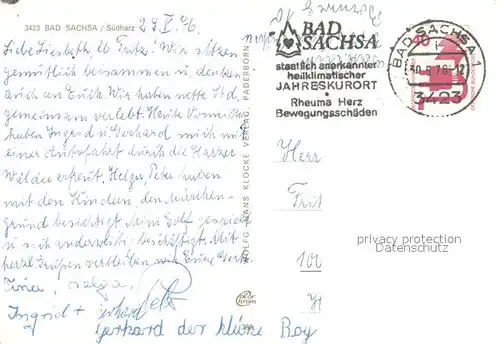 3423 BAD SACHSA / Südharz 29. V. 76
Liebe Liesbeth u. Fritz! Wir sitzen
gemütlich beisammen u. denken
auch an Euch. Wir haben nette Std.
gemeinsam verlebt. Heute Vormitt.
haben Ingrid u. Gerhard mich mit
einer Autofahrt durch die Harzer
Wälder erfreut. Helga, Peter haben
mit den Kindern, den Märchen-
grund besichtigt, Mini Golf gespielt
u. sich anderweitig beschäftigt. Mit
herzl. Grüßen verbleiben wir Eure
Helga Peter
Ingrid + Gerhard
Gerhard der kleine Boy
WOLFG. HANS KLOCKE VERLAG, PADERBORN
BAD
SACHSA
staatlich anerkannter
heilklimatischer
JAHRESKURORT
Rheuma Herz
Bewegungsschäden
BAD SACHSA 1
3423
40
Herrn
Frit
102
H
privacy protection
Datenschutz
color
chrom